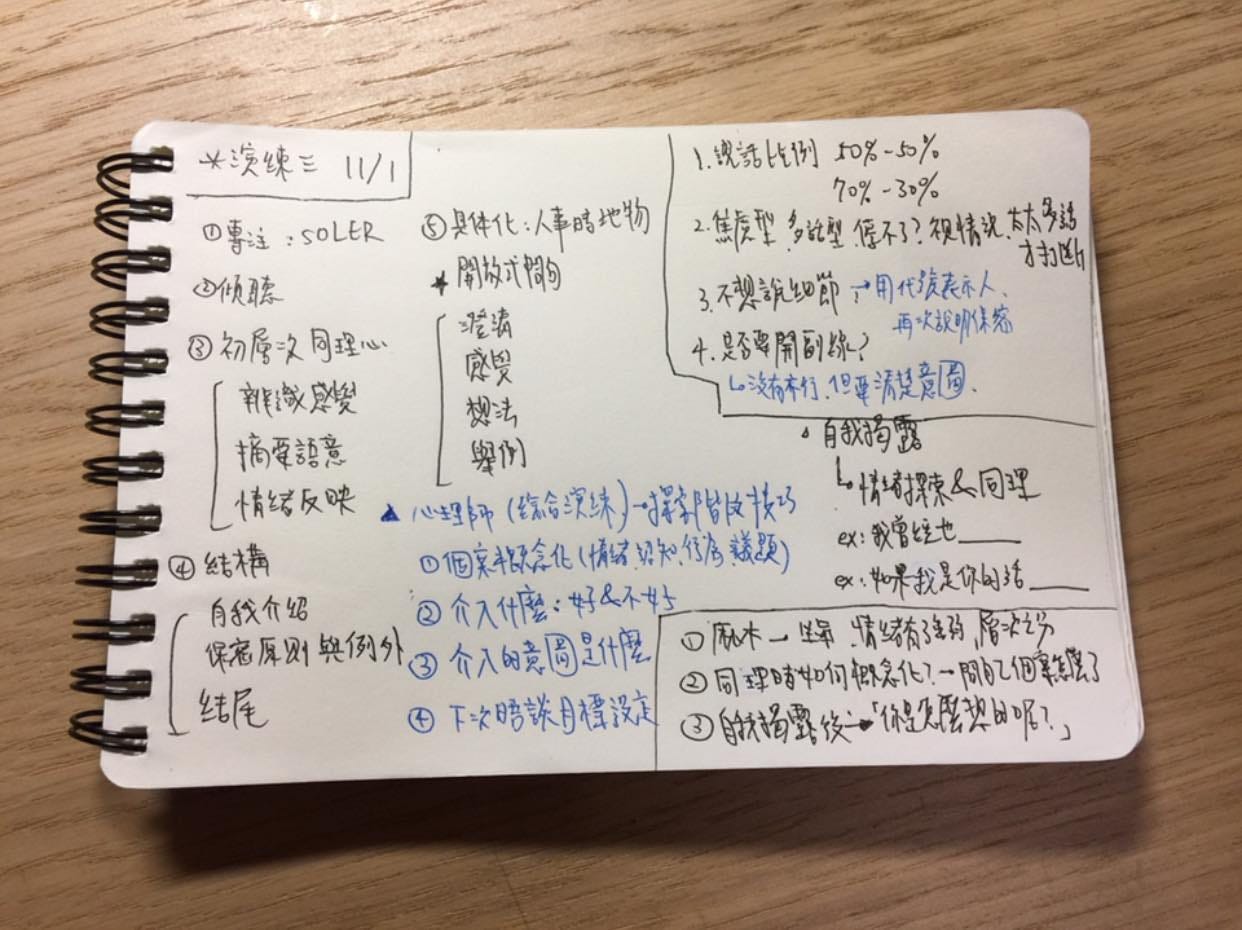 *演練三 11/1
①專注：SOLER
②傾聽
③初層次同理心
辨識感覺
摘要語意
情緒反映
④結構
自我介紹
保密原則與例外
結尾
⑤具体化：人事時地物
★開放式問句
澄清
感覺
想法
舉例
▲心理師(綜合演練)→探索階段技巧
①個案概念化(情緒、認知、行為、議題)
②介入什麼：好&不好
③介入的意圖是什麼
④下次晤談目標設定
1.說話比例 50%-50%
70%-30%
2.焦慮型、多話型,停不了？視情況,太多話
才打斷
3.不想說細節,→用代號表示人、
再次說明保密
4.是否要開副線？
↳沒有不行,但要清楚意圖.
自我揭露
↳情緒探索&同理
ex:我曾經也____
ex:如果我是你的話____
①麻木→生氣,情緒有強弱,層次之分
②同理時如何概念化？→問自己個案怎麼了
③自我揭露後→「你是怎麼想的呢？」